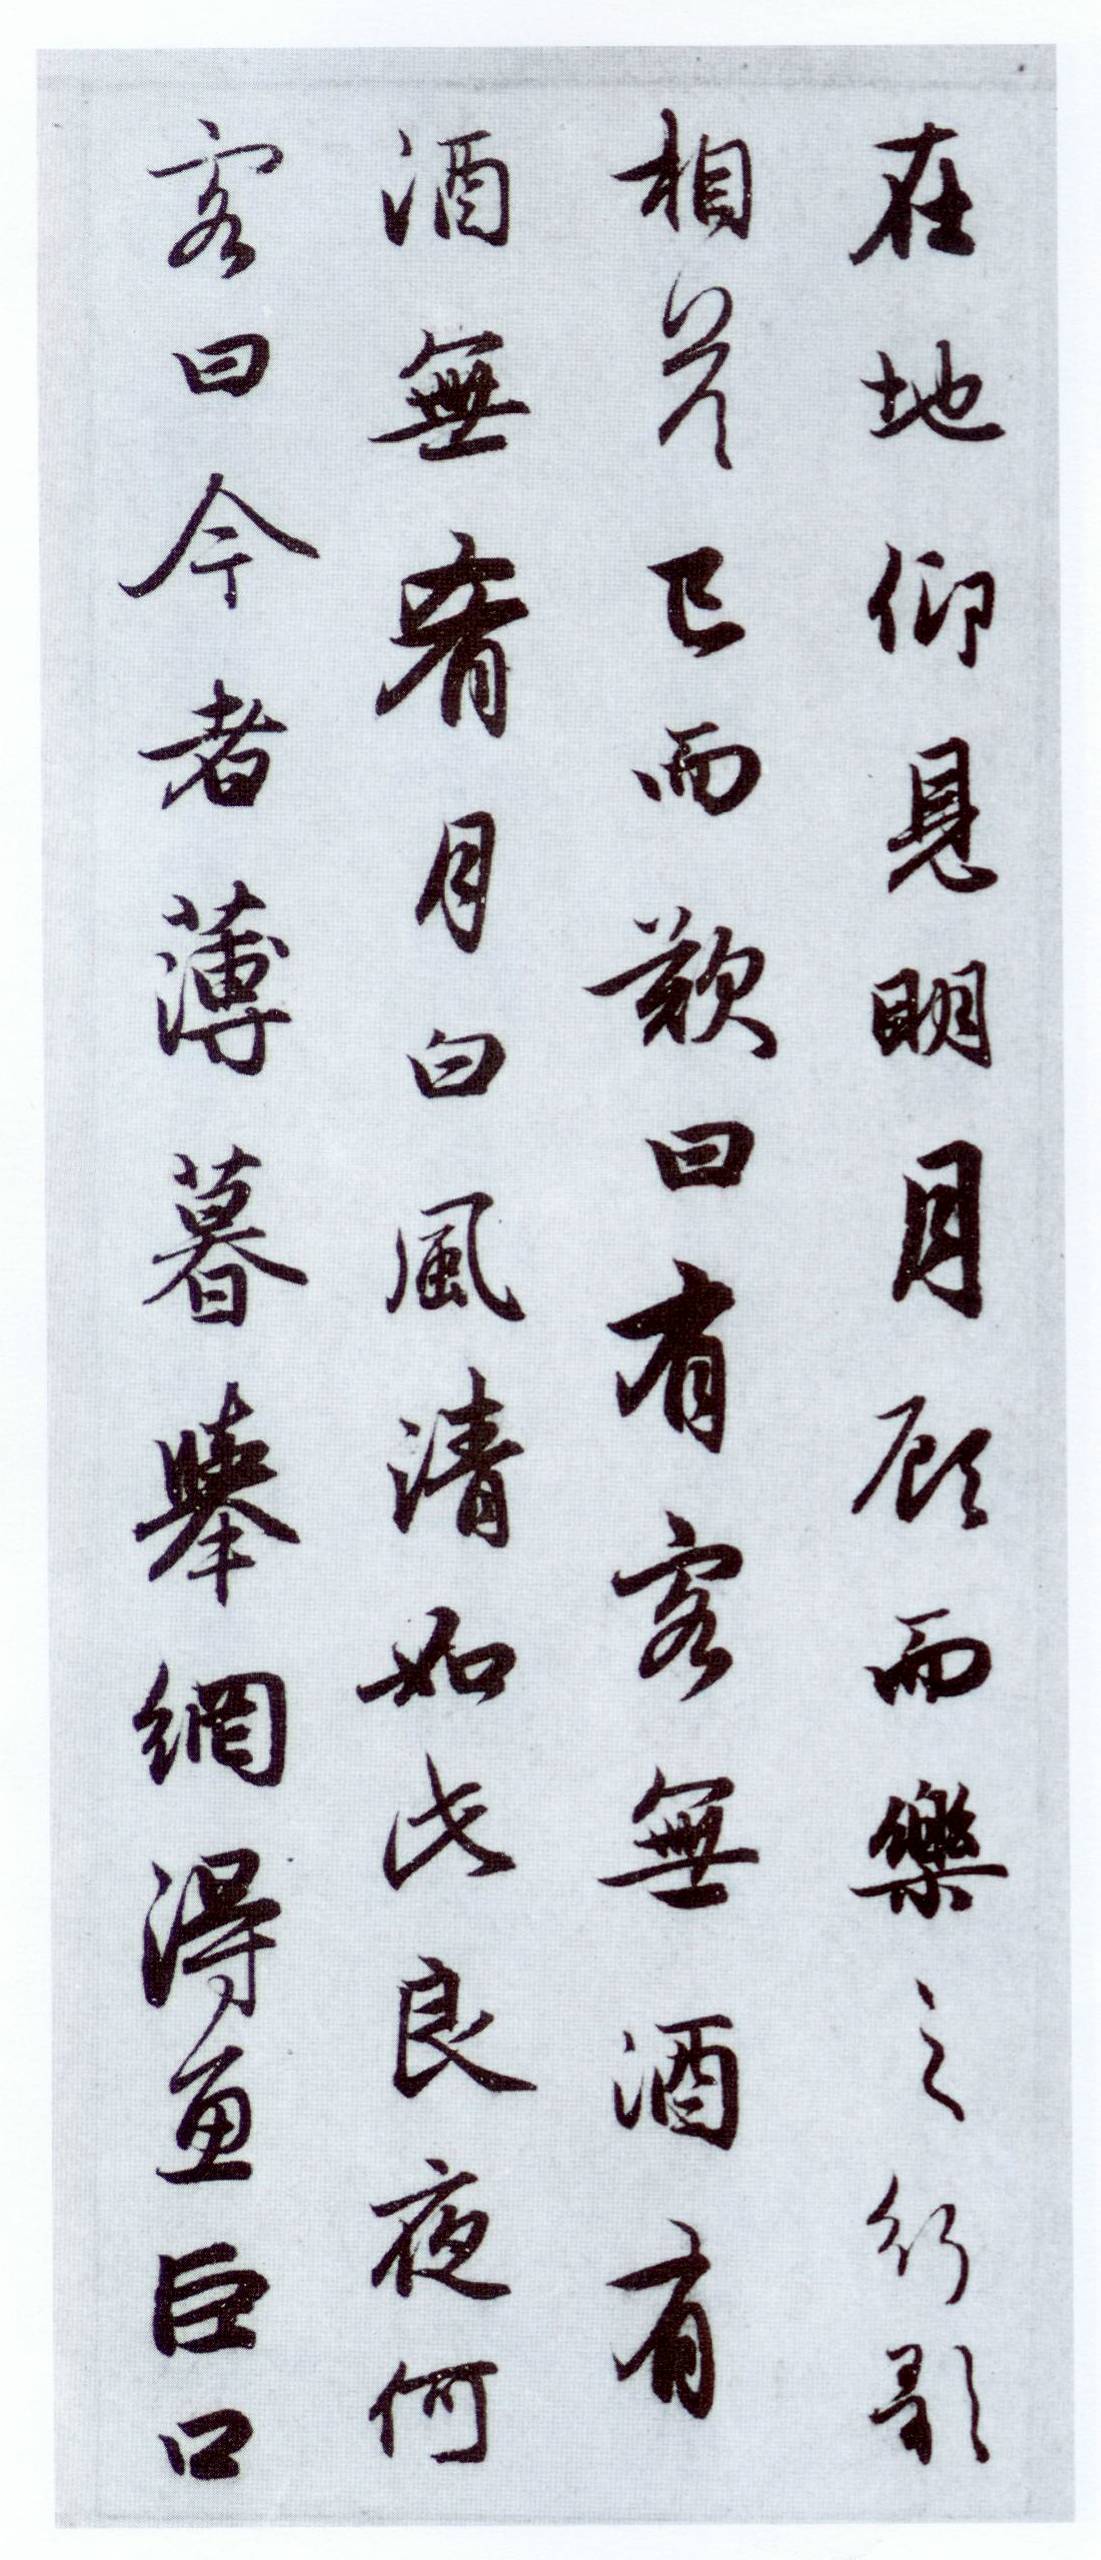 在地仰見明月顧而樂之行歌
相答已而歎曰有客無酒有
酒無肴月白風清如此良夜何
客曰今者薄暮舉網得魚巨口